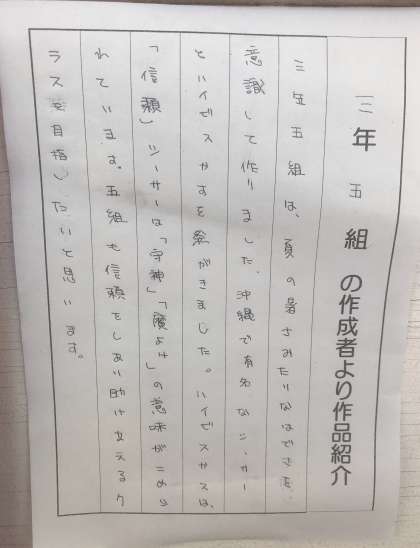 三年 五 組 の作成者より作品紹介
三年五組は、夏の暑さみたいなはでさを、
意識して作りました。沖縄で有名なシーサー
とハイビスカスを絵がきました。ハイビスカスは、
「信頼」シーサーは「守神」「魔よけ」の意味がこめら
れています。五組も信頼をしあい助け合えるク
ラスを目指したいと思います。